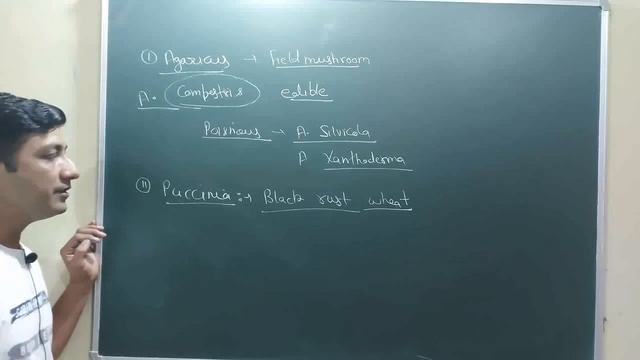 (I) Agaricus → Field mushroom
A. Campestris edible
Poisnious → A. Silvicola
A Xanthoderma
(II) Puccinia :→ Black rust wheat